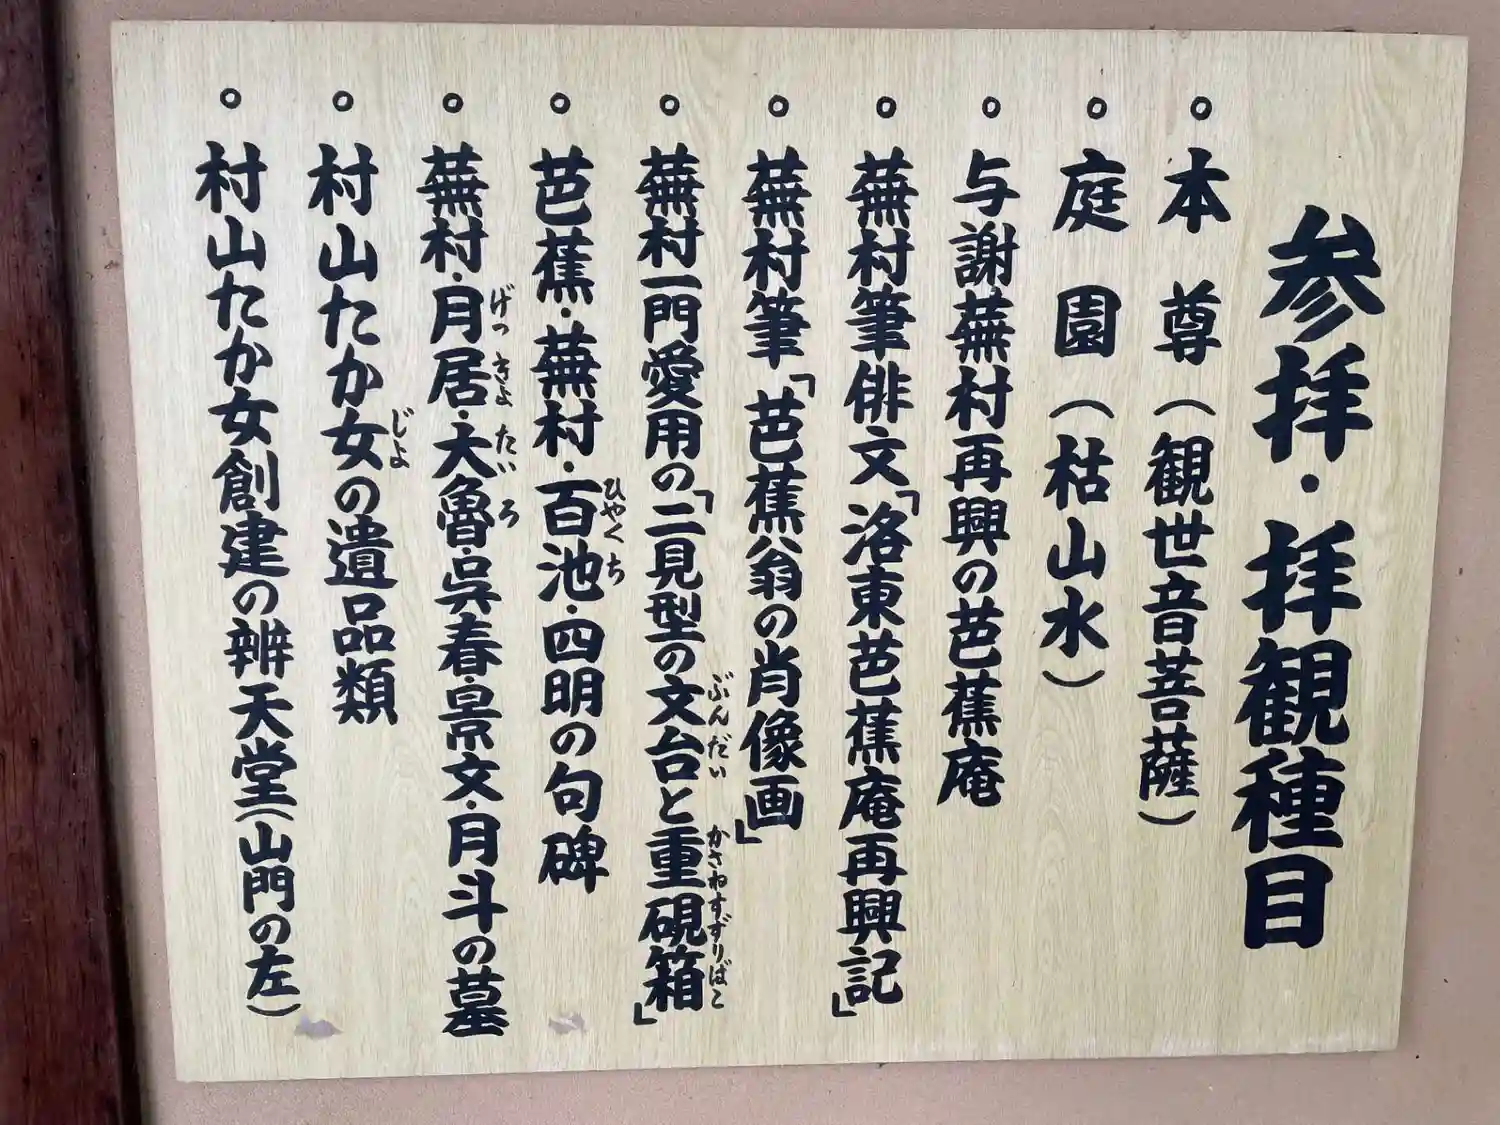 参拝・拝観種目
○ 本尊(観世音菩薩)
○ 庭園(枯山水)
○ 与謝蕪村再興の芭蕉庵
○ 蕪村筆俳文「洛東芭蕉庵再興記」
○ 蕪村筆「芭蕉翁の肖像画」
○ 蕪村一門愛用の「二見型の文台と重硯箱」
ぶんだい
かさねすずりばこ
○ 芭蕉・蕪村・百池・四明の句碑
ひゃくち
○ 蕪村・月居・大魯・呉春・景文・月斗の墓
げっきょ
たいろ
○ 村山たか女の遺品類
じょ
○ 村山たか女創建の辨天堂(山門の左)